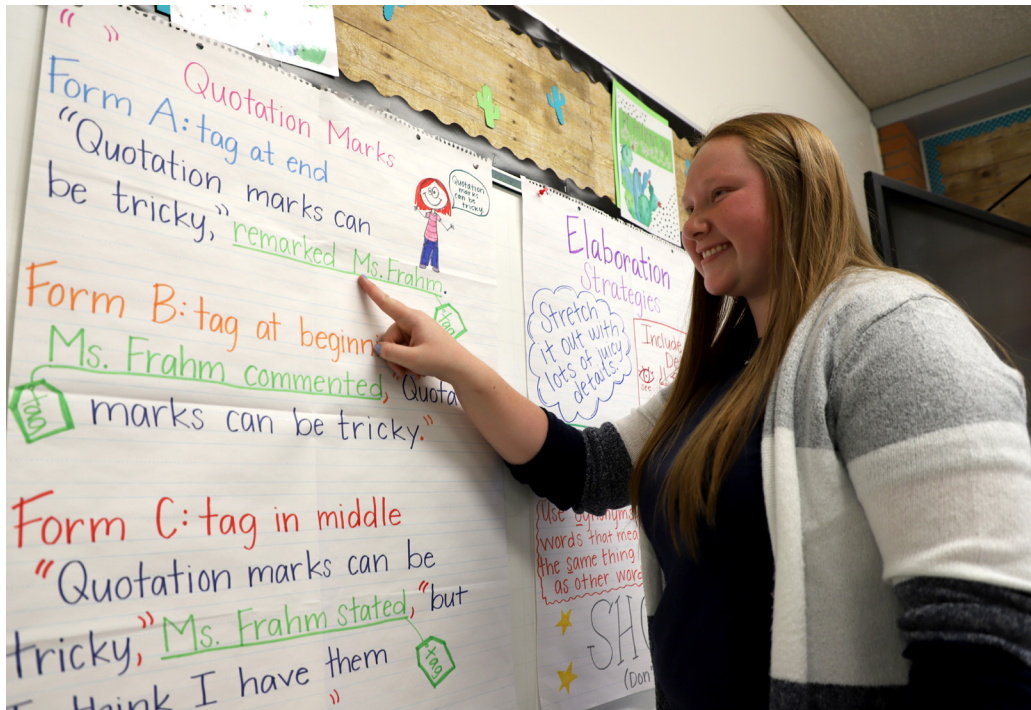 “ ”
Quotation Marks
Form A: tag at end
“Quotation marks can
be tricky,” remarked Ms. Frahm.
Quotation
marks
can be
tricky
tag
Form B: tag at beginn
Ms. Frahm commented, “Quota
tag
marks can be tricky.”
Form C: tag in middle
“Quotation marks can be
tricky,” Ms. Frahm stated, “but
tag
I think I have them
”
Elaboration
Strategies
Stretch
it out with
lots of juicy
details.
Include
De
see
Use synonyms
words that mea
the same thing
as other word
SHO
(Don'